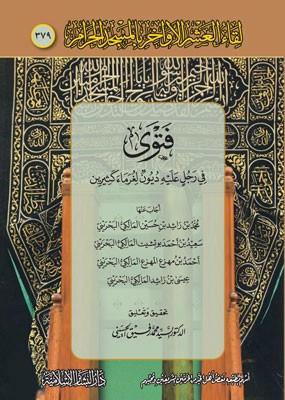 لقاء العشر الأواخر بالمسجد الحرام
٣٧٩
فتوى
في رجل عليه ديون لغرماء كثيرين
أجاب عنها
محمد بن راشد بن حسين المالكي البحريني
سعيد بن أحمد بوقشيت المالكي البحريني
أحمد بن مهزع المهزع المالكي البحريني
يحيى بن راشد المالكي البحريني
تحقيق وتعليق
الدكتور السيد محمد رفيق الحسيني
أسهم بطبعه بعض أهل الخير من الحرمين الشريفين ومحبيهم
دار البشائر الإسلامية